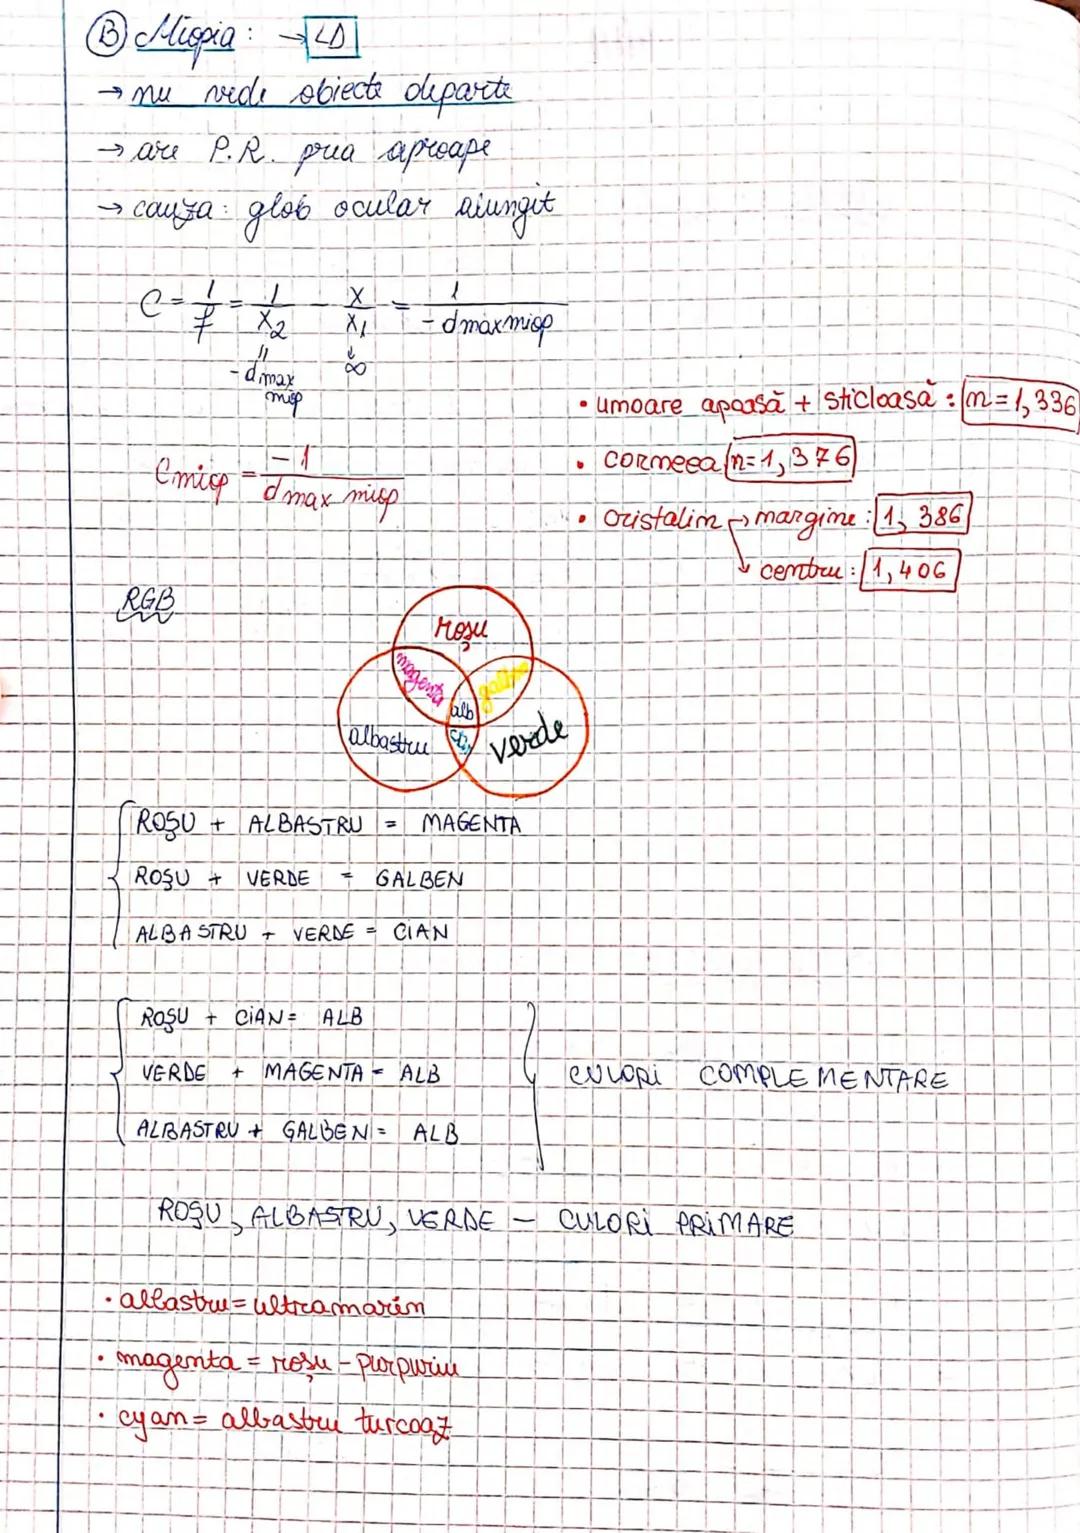 B Miopia: → LD
→ nu vede obiecte departe
→ are P.R. prea aproape
→ cauza: glob ocular alungit
C = 1/f = 1/x₂ - x/x₁ = 1/-dmaxmiop
-dmax miop
∞
Cmiop = -1/dmax miop
• umoare apoasă + sticloasă : n=1,336
• corneea n=1,376
• cristalin → margine : 1,386
↘ centru : 1,406
RGB
roșu
magenta
galben
alb
albastru
verde
ROȘU + ALBASTRU = MAGENTA
ROȘU + VERDE = GALBEN
ALBASTRU + VERDE = CIAN
ROȘU + CIAN = ALB
VERDE + MAGENTA = ALB
CULORI COMPLEMENTARE
ALBASTRU + GALBEN = ALB
ROȘU, ALBASTRU, VERDE - CULORI PRIMARE
• albastru = ultramarin
• magenta = roșu - purpuriu
• cyan = albastru turcoaz